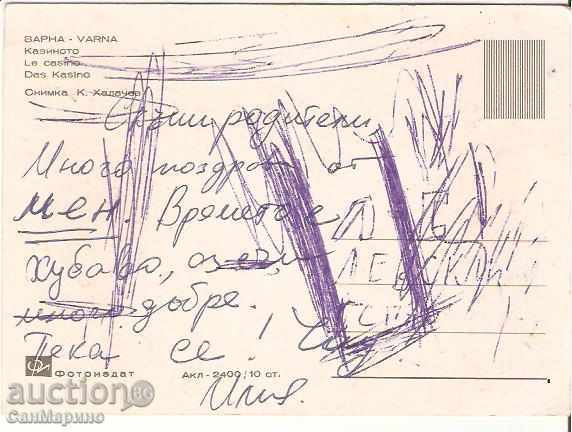 ВАРНА - VARNA
Казиното
Le casino
Das Kasino
Снимка К. Халачев
Скъпи родители,
Много поздрави от
мен. Времето е
хубаво,
много добре.
Така се!
Илия.
ЛЕВСКИ
Фотоиздат
Акл - 2400/10 ст.
auction BG
СанМарино